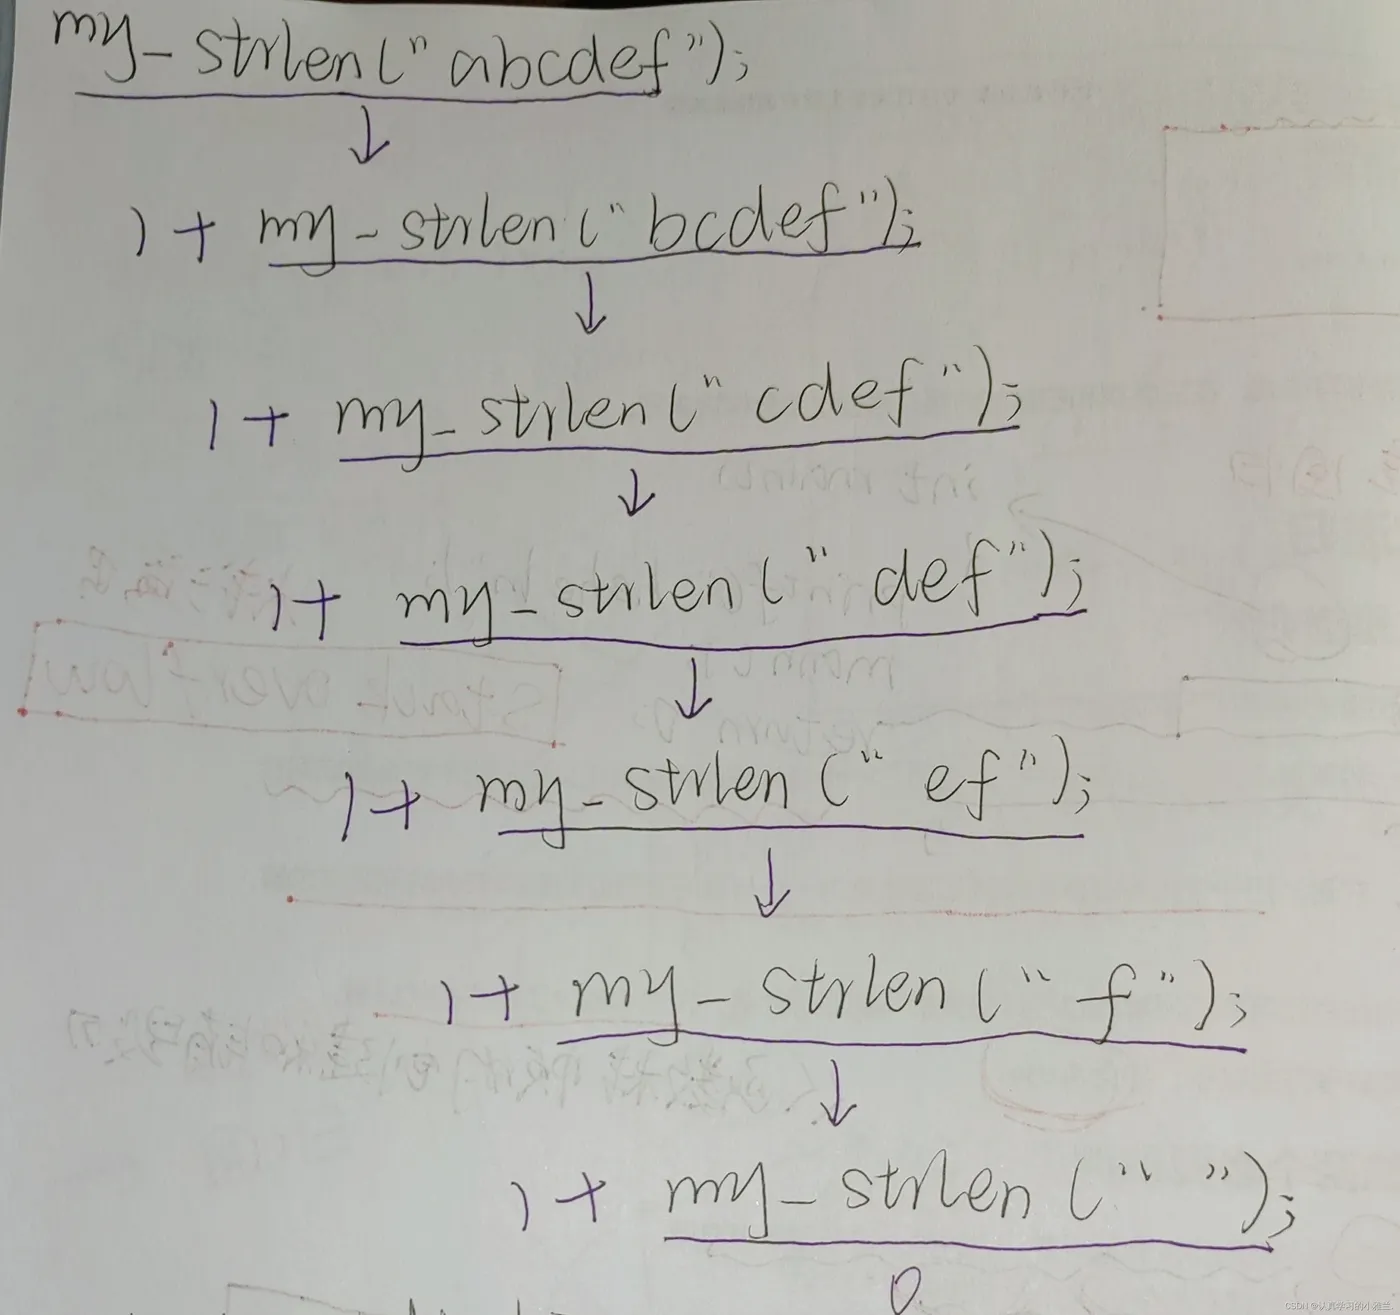 my_strlen("abcdef");
1+ my_strlen("bcdef");
1+ my_strlen("cdef");
int main()
1+ my_strlen("def");
main()
stack overflow
return 0
1+ my_strlen("ef");
1+ my_strlen("f");
1+ my_strlen("");
0
CSDN @认真学习的小雅兰.